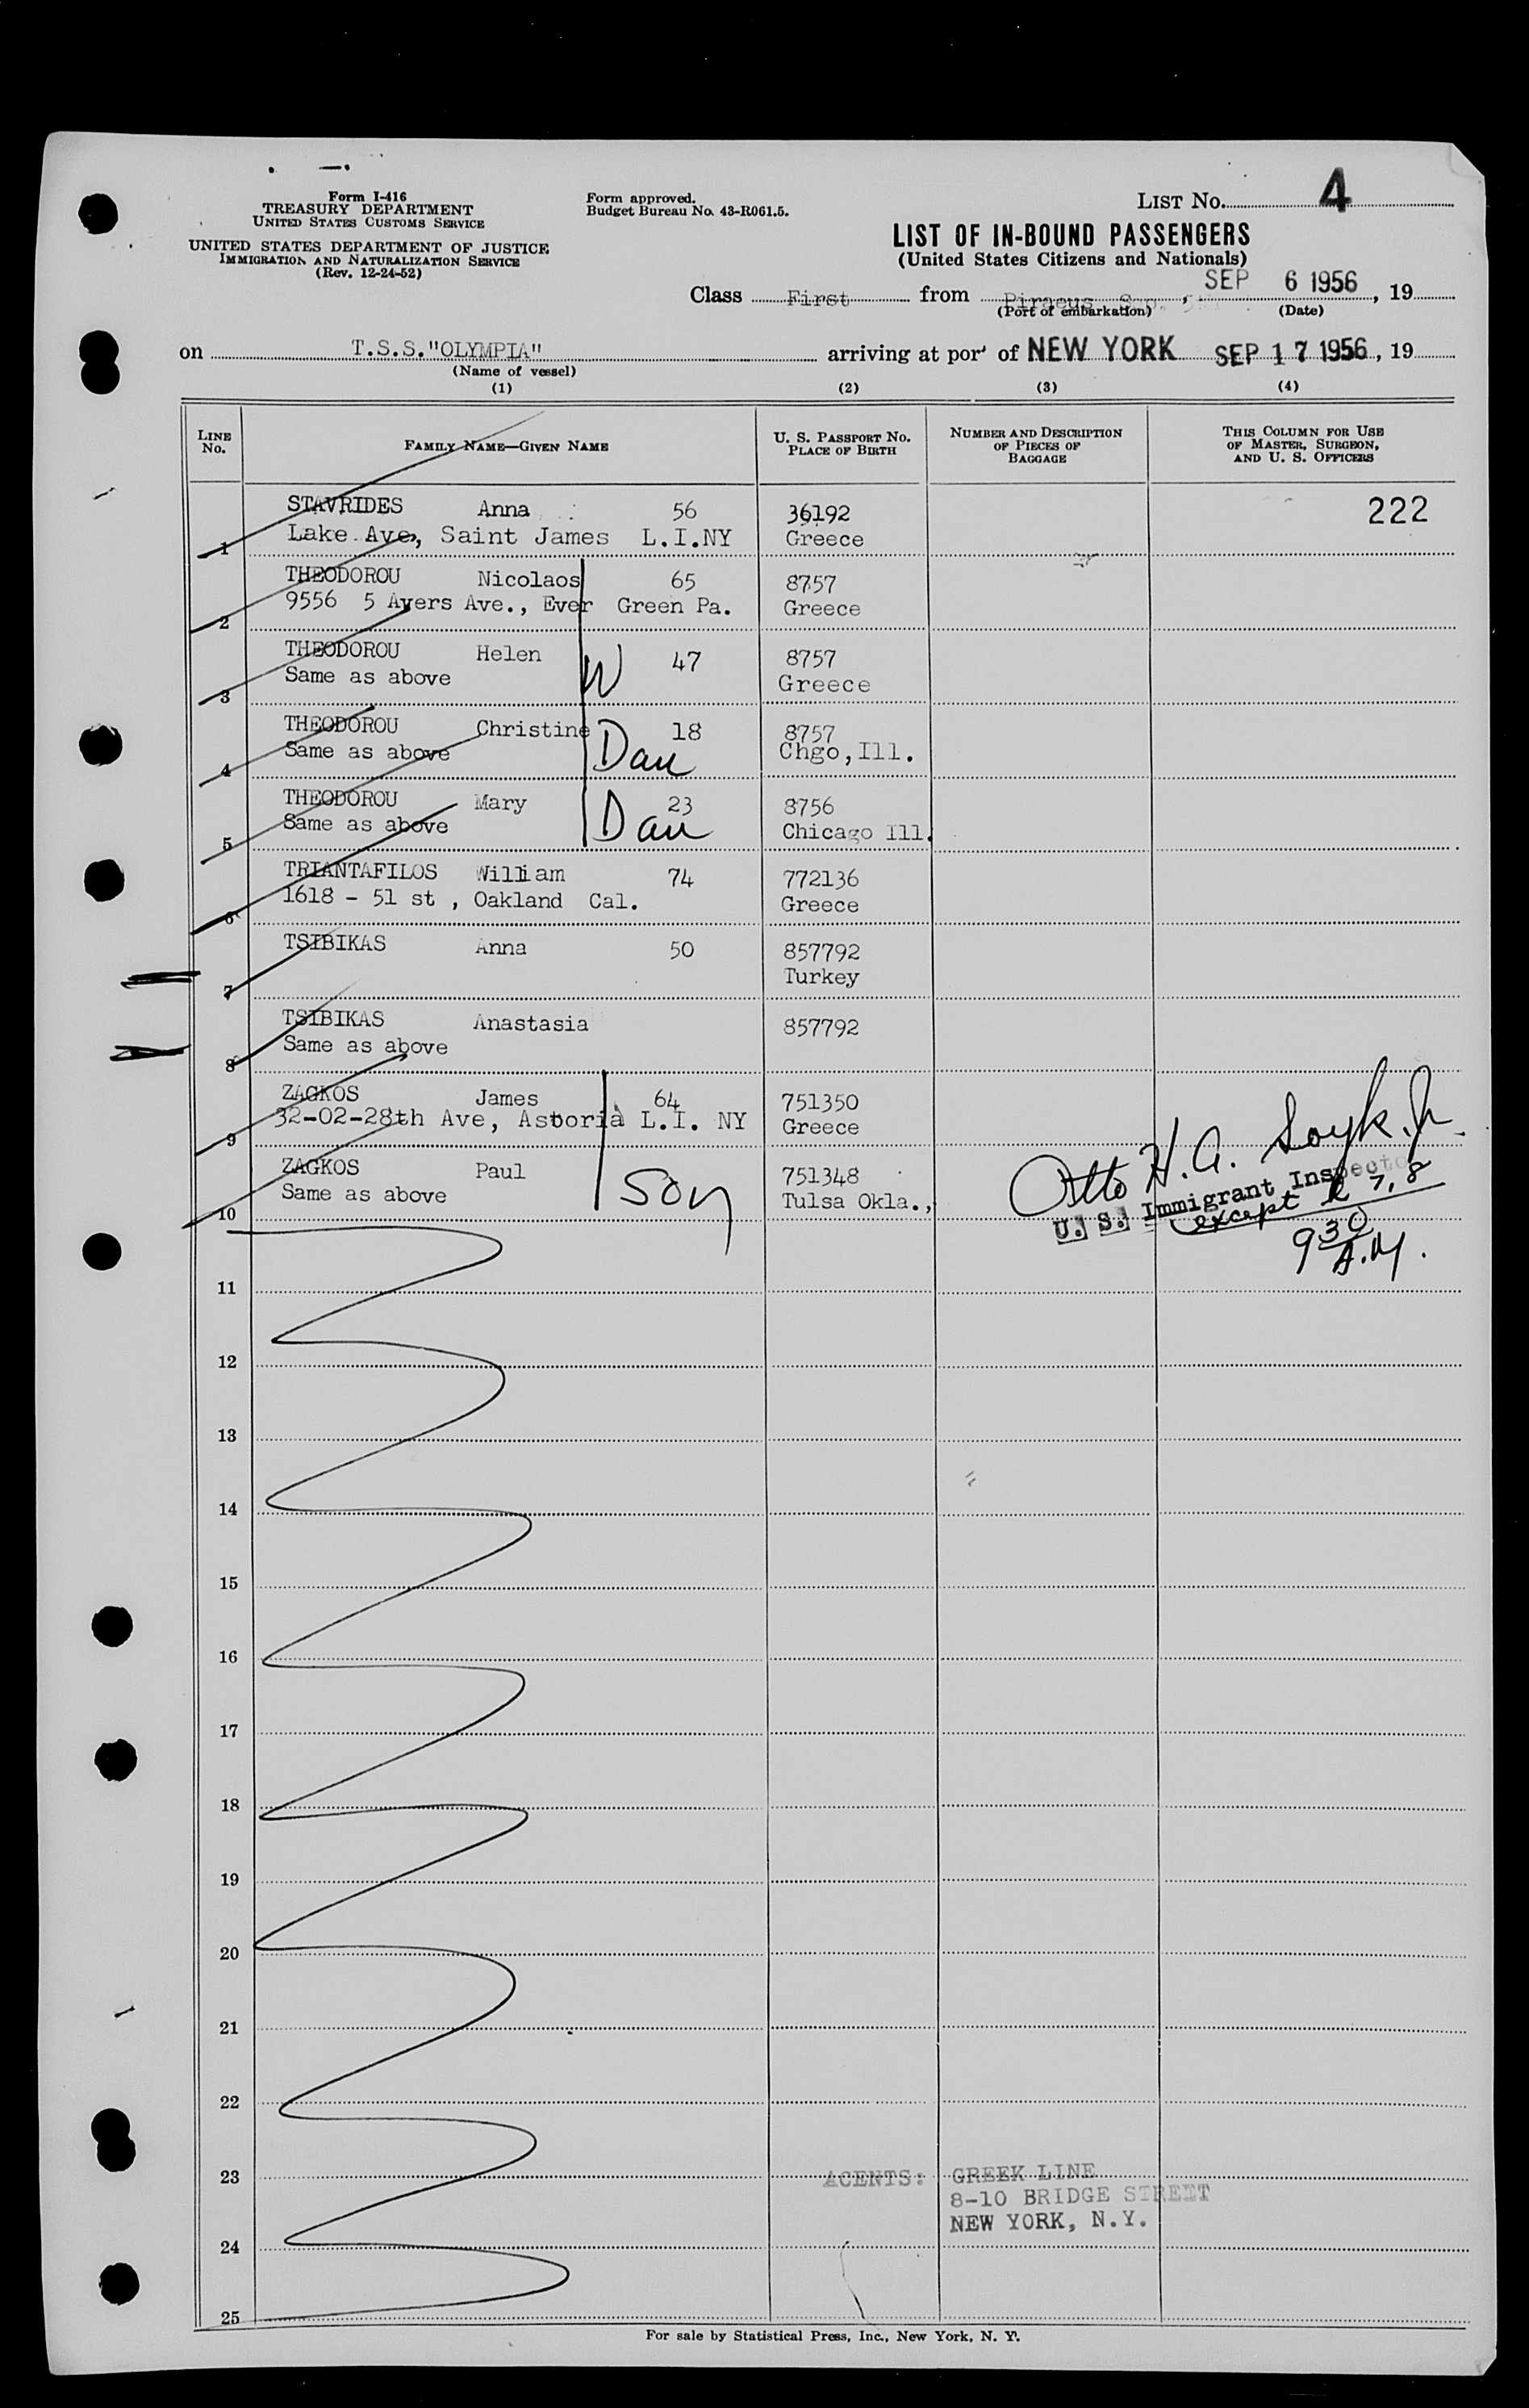 Form I-416
TREASURY DEPARTMENT
UNITED STATES CUSTOMS SERVICE
UNITED STATES DEPARTMENT OF JUSTICE
IMMIGRATION AND NATURALIZATION SERVICE
(Rev. 12-24-52)
Form approved.
Budget Bureau No. 43-R061.5.
LIST No. 4
LIST OF IN-BOUND PASSENGERS
(United States Citizens and Nationals)
Class First from Piraeus, SEP 6 1956, 19
(Port of embarkation) (Date)
on T.S.S."OLYMPIA" arriving at port of NEW YORK SEP 17 1956, 19
(Name of vessel)
(1) (2) (3) (4)
LINE No. FAMILY NAME—GIVEN NAME U. S. PASSPORT No. PLACE OF BIRTH NUMBER AND DESCRIPTION OF PIECES OF BAGGAGE THIS COLUMN FOR USE OF MASTER, SURGEON, AND U. S. OFFICERS
STAVRIDES Anna 56 36192 222
1 Lake Ave, Saint James L.I.NY Greece
THEODOROU Nicolaos 65 8757
2 9556 5 Avers Ave., Ever Green Pa. Greece
THEODOROU Helen W 47 8757
3 Same as above Greece
THEODOROU Christine 18 8757
4 Same as above Dau Chgo,Ill.
THEODOROU Mary 23 8756
5 Same as above Dau Chicago Ill.
TRIANTAFILOS William 74 772136
6 1618 - 51 st , Oakland Cal. Greece
TSIBIKAS Anna 50 857792
7 Turkey
TSIBIKAS Anastasia 857792
8 Same as above
ZAGKOS James 64 751350
9 32-02-28th Ave, Astoria L.I. NY Greece
ZAGKOS Paul 751348
10 Same as above Son Tulsa Okla.,
Otto H. A. Soyk. Jr.
U. S. Immigrant Inspector
except l 7,8
9 30
A.M.
11
12
13
14
15
16
17
18
19
20
21
22
23 AGENTS: GREEK LINE
8-10 BRIDGE STREET
NEW YORK, N.Y.
24
25
For sale by Statistical Press, Inc., New York, N. Y.